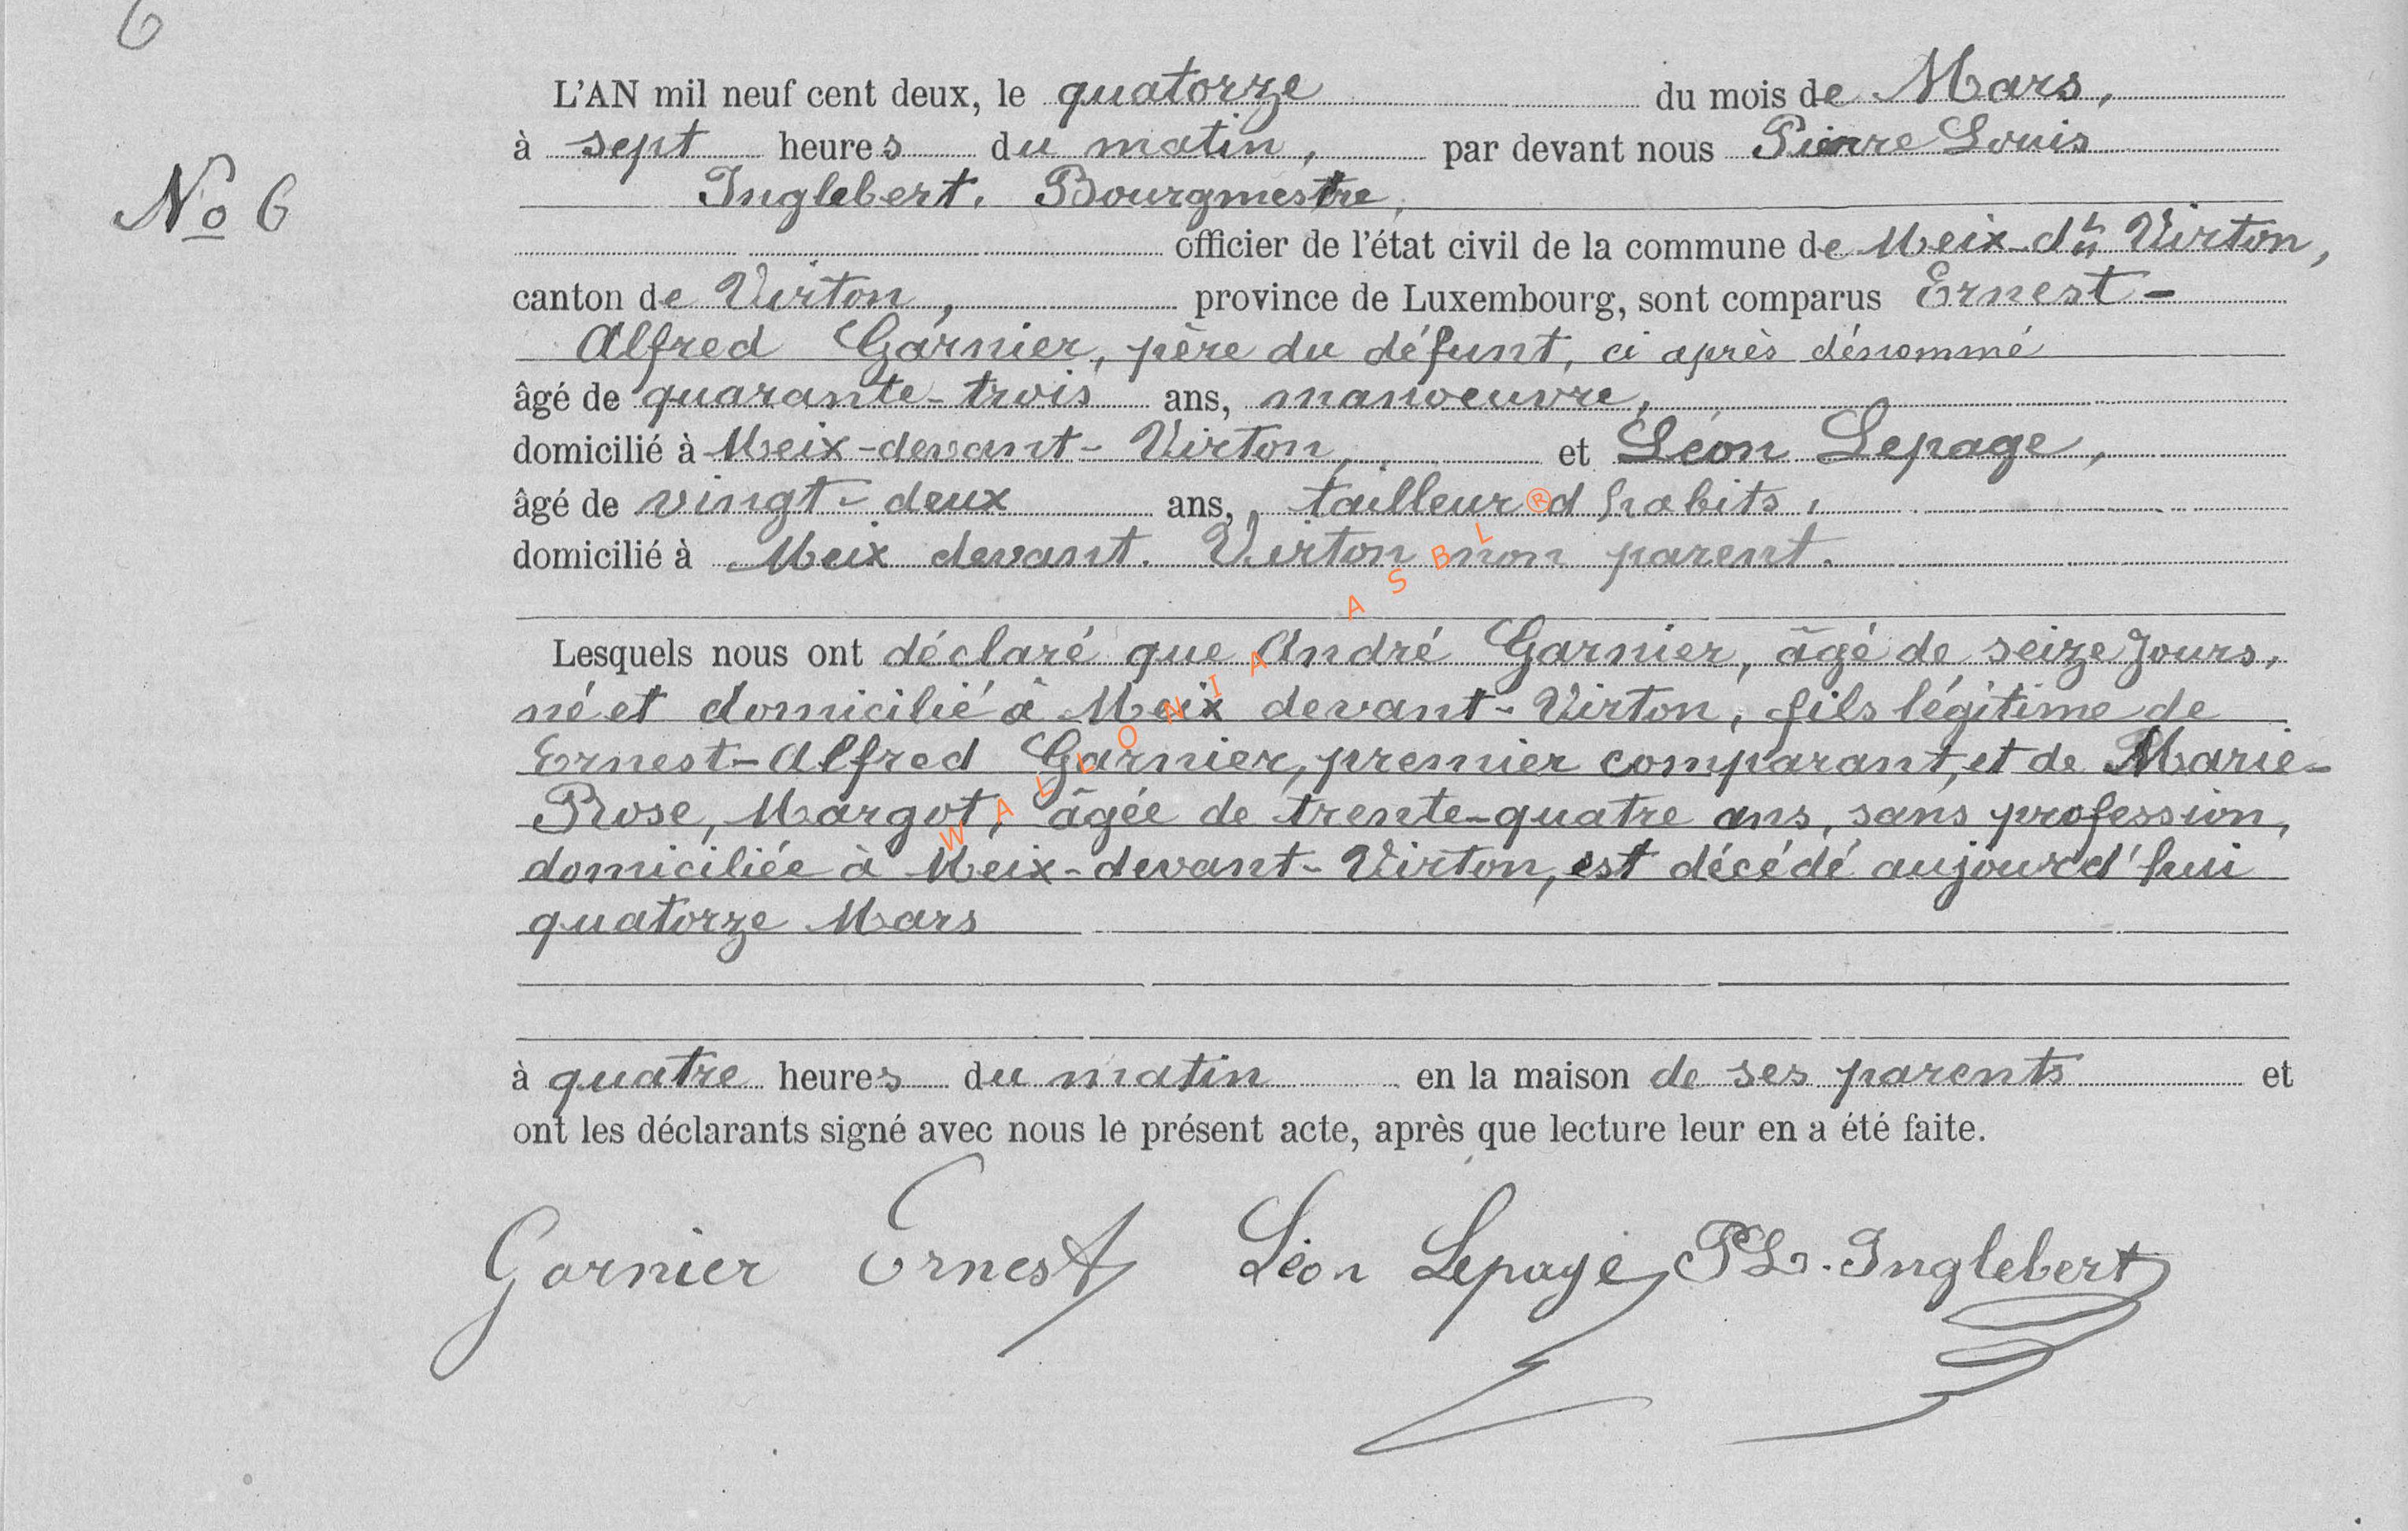 6
L'AN mil neuf cent deux, le quatorze du mois de Mars,
à sept heures du matin, par devant nous Pierre Louis
No 6
Inglebert. Bourgmestre,
officier de l'état civil de la commune de Meix-dt Virton,
canton de Virton, province de Luxembourg, sont comparus Ernest-
Alfred Garnier, père du défunt, ci après dénommé
âgé de quarante-trois ans, manoeuvre,
domicilié à Meix-devant-Virton, et Léon Lepage,
âgé de vingt-deux ans, tailleur d habits,
domicilié à Meix devant. Virton non parent.
Lesquels nous ont déclaré que André Garnier, âgé de seize jours,
né et domicilié à Meix devant-Virton, fils légitime de
Ernest-Alfred Garnier, premier comparant, et de Marie-
Rose, Margot, âgée de trente-quatre ans, sans profession,
domiciliée à Meix-devant-Virton, est décédé aujourd'hui
quatorze Mars
à quatre heures du matin en la maison de ses parents et
ont les déclarants signé avec nous le présent acte, après que lecture leur en a été faite.
Garnier Ernest Léon Lepage PL. Inglebert
WALLONIA ASBL ®